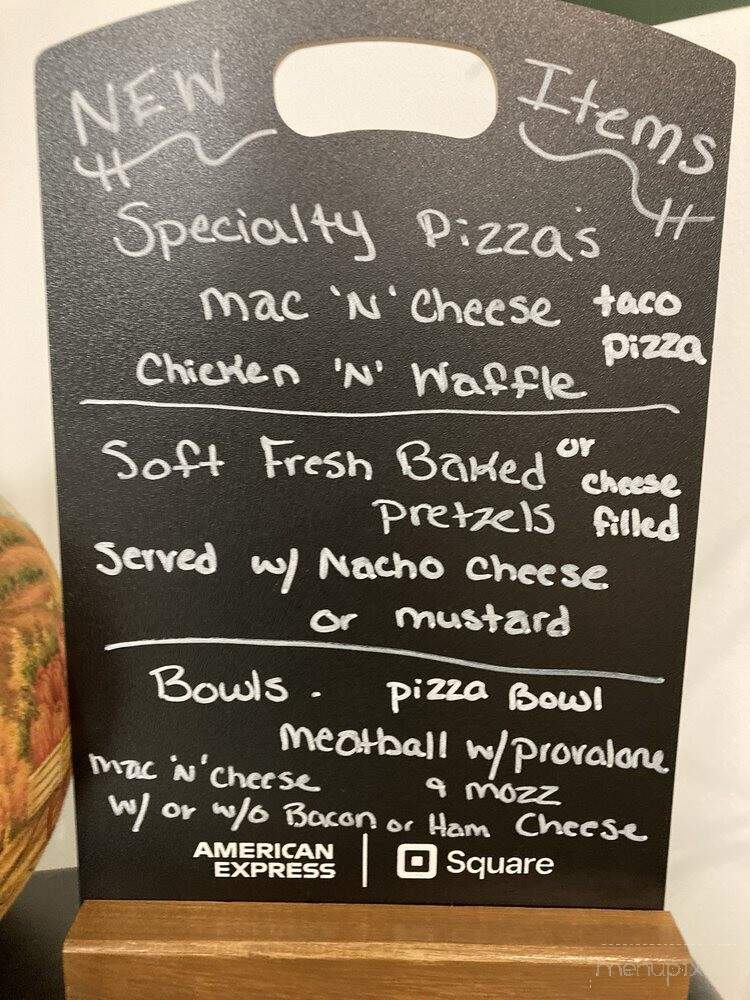 NEW Items
Specialty Pizza's
mac 'N' Cheese taco
pizza
Chicken 'N' Waffle
Soft Fresh Baked or
cheese
Pretzels filled
Served w/ Nacho cheese
or mustard
Bowls . pizza Bowl
meatball w/provalone
mac 'N' cheese & mozz
w/ or w/o Bacon or Ham Cheese
AMERICAN
EXPRESS
Square
menupix